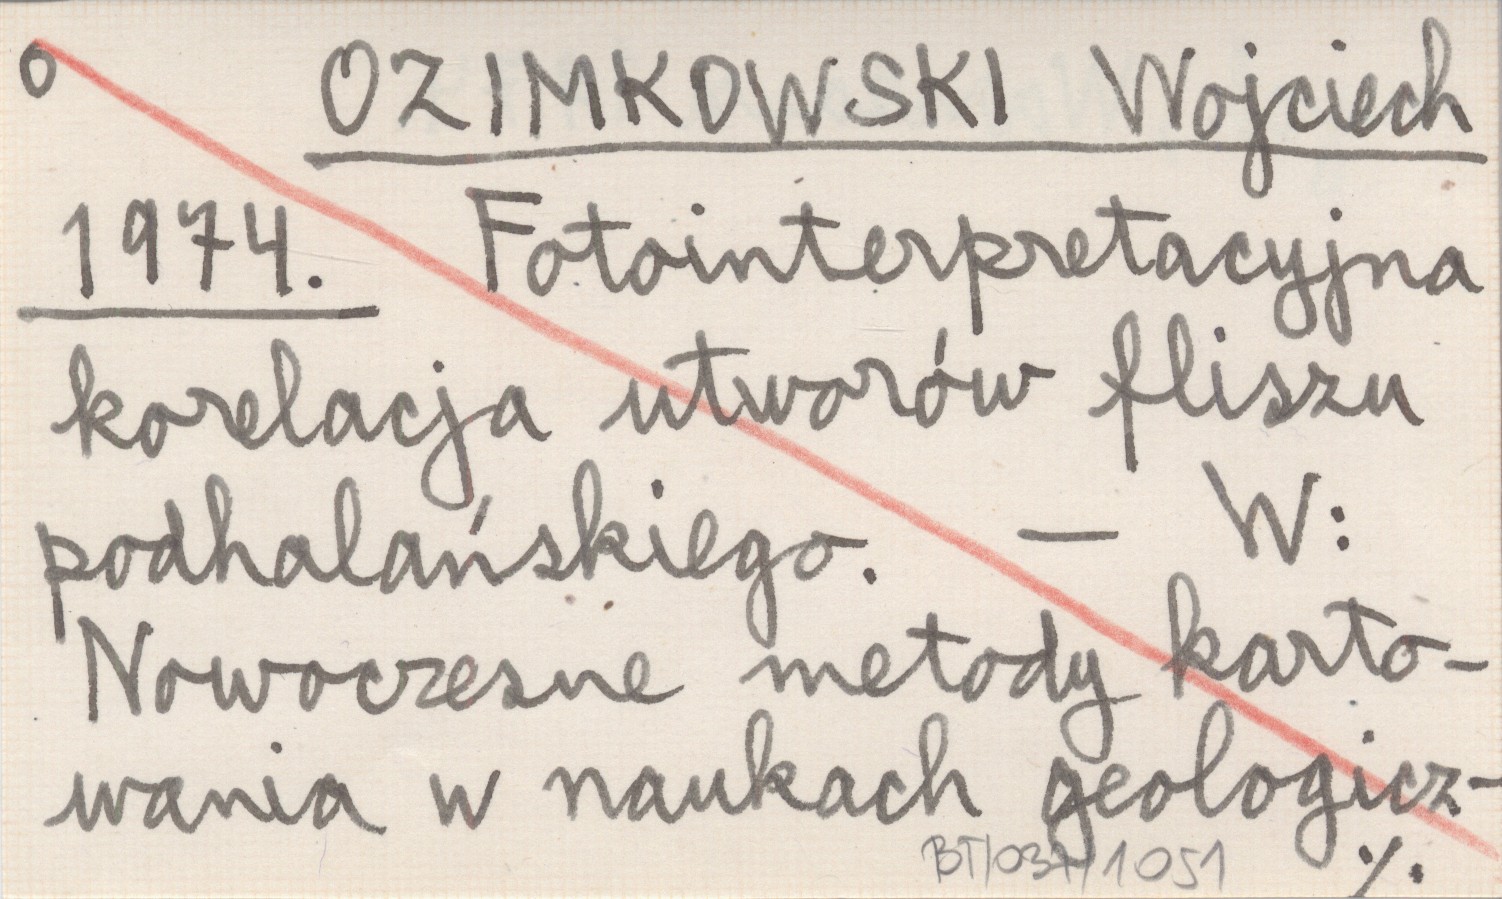 O OZIMKOWSKI Wojciech
1974. Fotointerpretacyjna
korelacja utworów fliszu
podhalańskiego. — W:
Nowoczesne metody karto-
wania w naukach geologicz-
BT/037/1051 ·/.